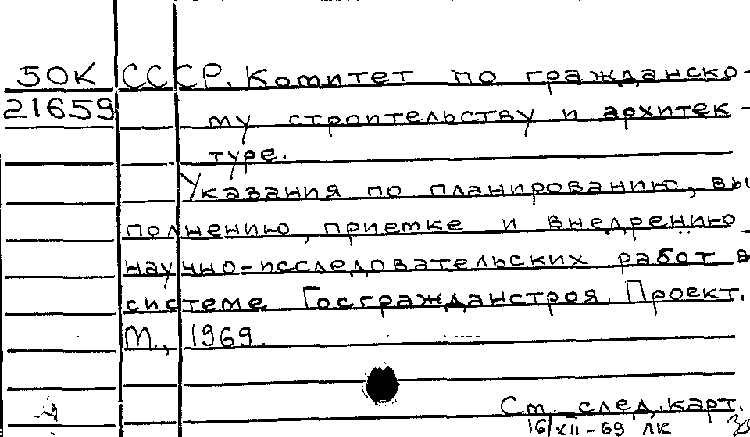 50К СССР. Комитет по гражданско-
21659 му строительству и архитек-
туре.
Указания по планированию, вы
полнению, приемке и внедрению
научно-исследовательских работ в
системе Госгражданстроя. Проект.
М., 1969.
См. след. карт.
16/XII-69 ЛК